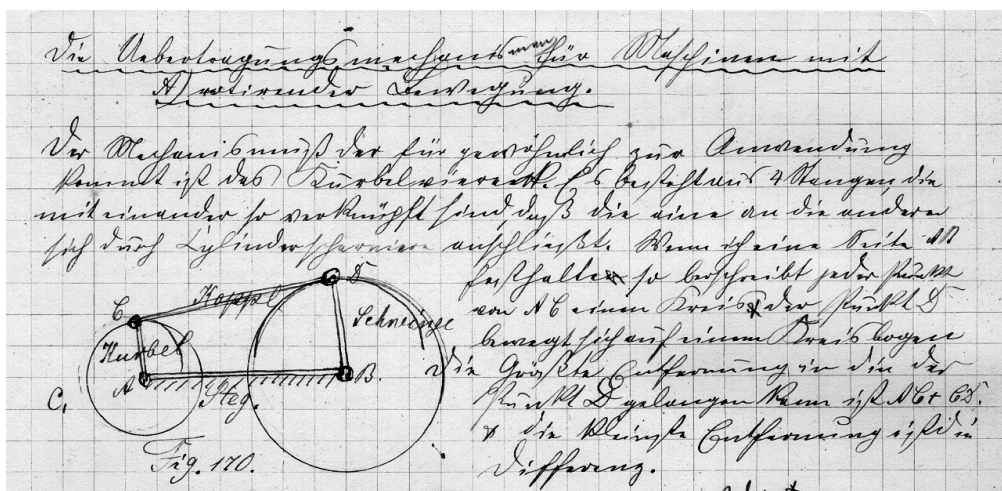 Die Uebertragungsmechanismen für Maschinen mit
A) rotirender Bewegung.
Der Mechanismuß der für gewöhnlich zur Anwendung
kommt ist das Kurbelviereck. Es besteht aus 4 Stangen, die
mit einander so verknüpft sind, daß die eine an die andere
sich durch Cylinderscharniere anschließt. Wenn ich eine Seite AB
festhalte so beschreibt jeder Punkt
von AC einen Kreis & der Punkt D
bewegt sich auf einem Kreisbogen
Die Größte Entfernung in die der
Punkt D gelangen kann ist AC + CD.
& die kleinste Entfernung ist die
Differenz.
C
Koppel
D
Kurbel
Schwinge
A
B.
C,
Steg.
Fig. 170.